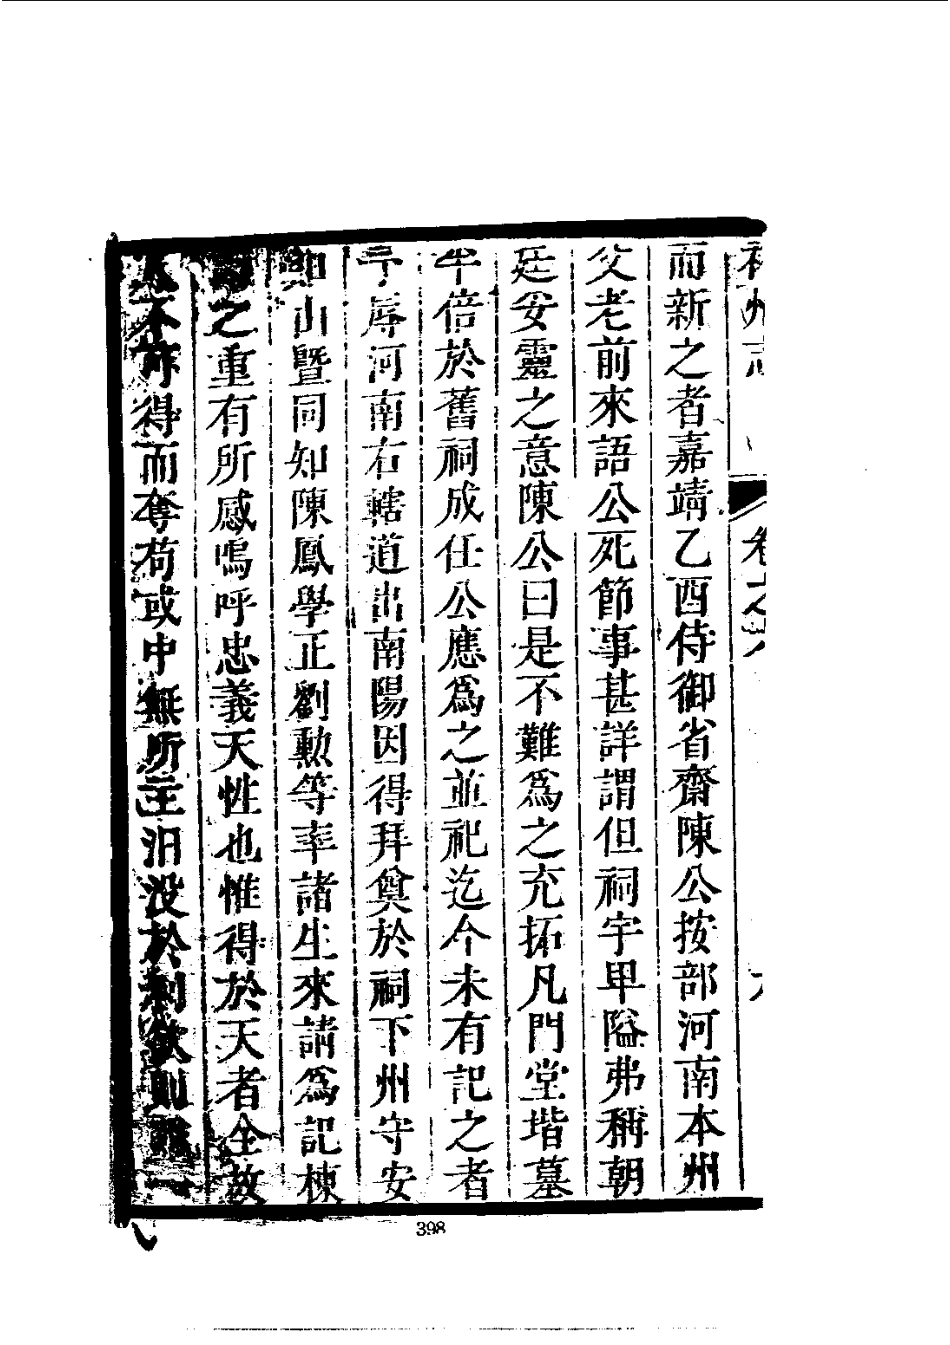 州志 卷之六 六
而新之者嘉靖乙酉侍御省齋陳公按部河南本州
父老前來語公死節事甚詳謂但祠宇卑隘弗稱朝
廷妥靈之意陳公曰是不難爲之充拓凡門堂堦墓
半倍於舊祠成任公應爲之並祀迄今未有記之者
予辱河南右轄道出南陽因得拜奠於祠下州守安
山暨同知陳鳳學正劉勲等率諸生來請爲記棟
之重有所感嗚呼忠義天性也惟得於天者全故
不可得而奪苟或中無所主汩没於利欲則雖一
398